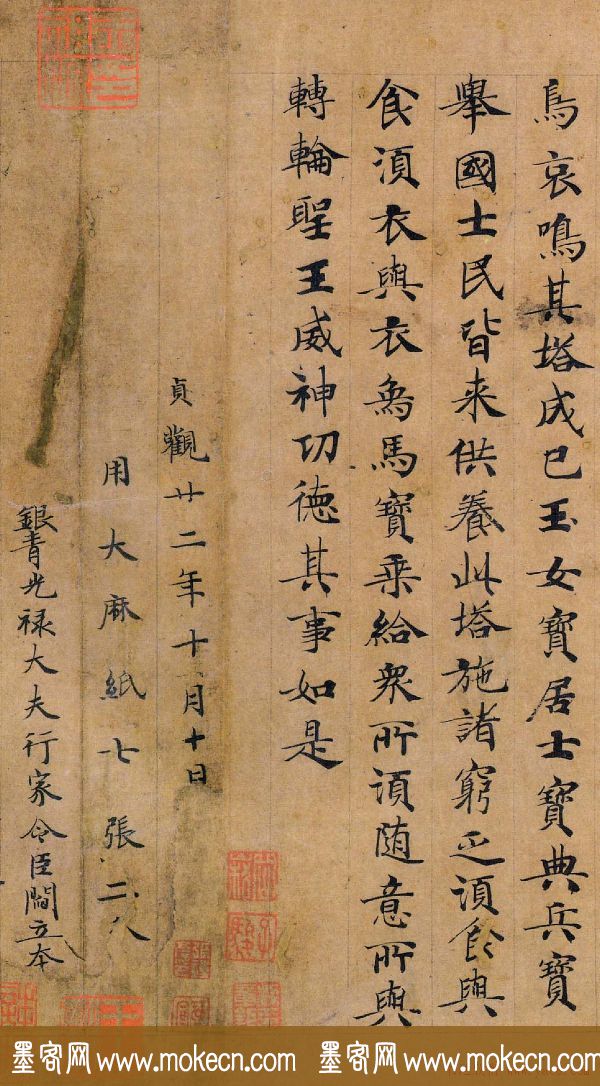 鳥哀鳴其塔成已玉女寶居士寶典兵寶
舉國士民皆来供養此塔施諸窮乏須食與
食須衣與衣象馬寶乘給衆所須随意所與
轉輪聖王威神功德其事如是
貞觀廿二年十月十日
用大麻紙七張二分
銀青光禄大夫行家令臣閻立本
墨客网 www.mokecn.com 墨客网 www.mokecn.com